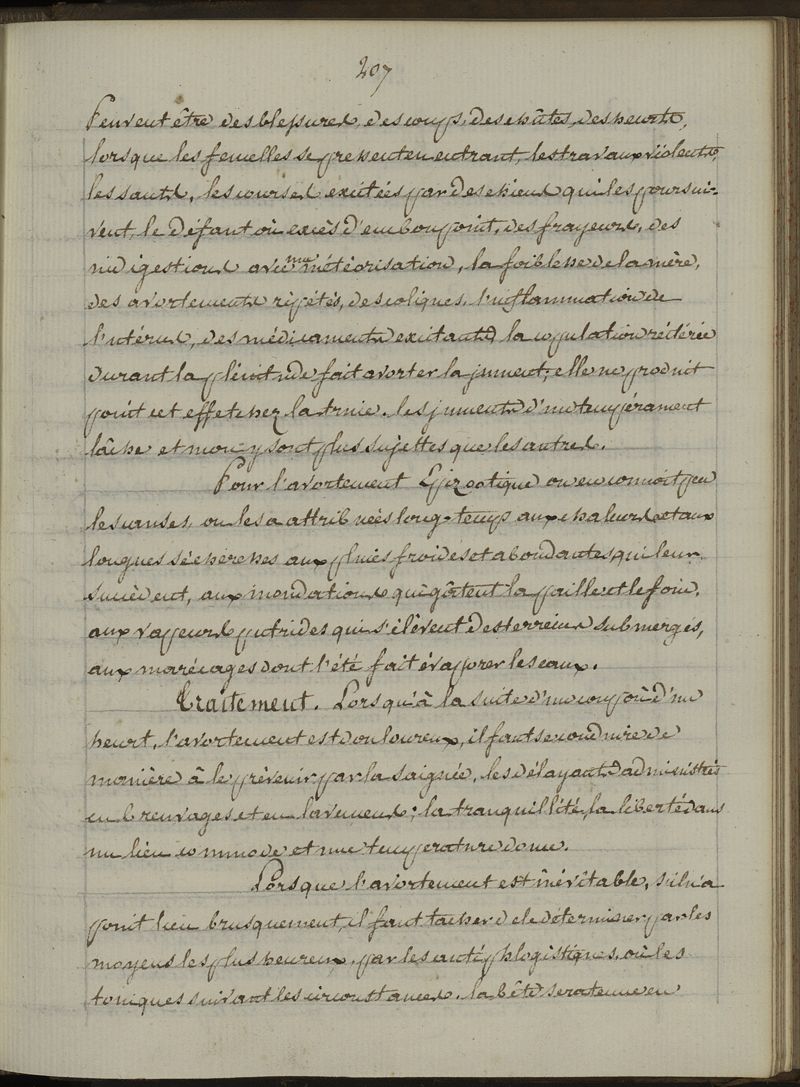 207
Peuvent être des blessures, des coups, des chûtes, des heurts,
lorsque les femelles se pressent en entrant, les travaux violents,
les sauts, les courses excitées par des chiens qui les poursui-
vent, le défaut où excès d'embonpoint, des frayeurs, des
indigestions avec météorisation, la foiblesse de la mère,
des avortements répétés, des coliques, l'inflammation de
l'utérus, des médicaments excitants, la copulation réitérée
durant la plénitude fait avorter la jument; elle ne produit
point cet effet chez la truie. les juments d'un tempérament
lâche et mou y sont plus sujettes que les autres.
Pour l'avortement Epizootique on en connoit peu
les causes, on les a attribuées long-temps aux chaleurs et aux
longues sécheresses aux pluies froides et abondantes qui leur
succèdent, aux inondations qui gâtent la paille et le foin,
aux vapeurs putrides qui s'élèvent des terreins submergés,
aux marécages dont l'été fait évaporer les eaux.
Traitement. Lorsqu'à la suite d'un coup où d'un
heurt, l'avortement est douloureux, il faut se conduire de
manière à le prévenir par la saignée, les délayants administrés
en breuvages et en lavemens; la tranquillité, la liberté dans
un lieu commode et une température douce.
Lorsque l'avortement est inévitable, s'il n'a
point lieu brusquement, il faut tacher de le déterminer par les
moyens les plus heureux, par les antiphlogistiques, où les
toniques suivant les circonstances. la bête sera tenue en